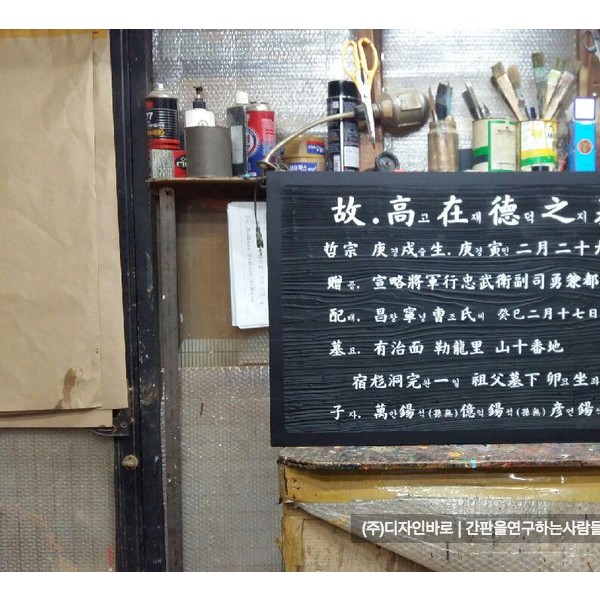 故.高고 在재 德덕 之지
哲宗 庚경戌술生. 庚경寅인 二月二十
贈증. 宣略將軍行忠武衛副司勇兼都
配배. 昌창寧녕曺조氏씨 癸巳二月十七日
墓묘. 有治面 勒龍里 山十番地
宿彪洞完완一일 祖父墓下 卯묘坐좌
子자. 萬만鍚석(孫無)億억鍚석(孫無)彦언鍚석
(주)디자인바로 | 간판을연구하는사람들